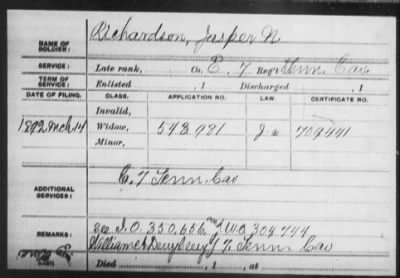 NAME OF SOLDIER: Richardson, Jasper N
SERVICE: Late rank, Co. E, 7 Reg't Tenn. Cav
TERM OF SERVICE: Enlisted , 1 Discharged , 1
DATE OF FILING. CLASS. APPLICATION NO. LAW. CERTIFICATE NO.
Invalid,
1892 Mch 14 Widow, 543.981 709441
Minor,
ADDITIONAL SERVICES: E. 7 Tenn. Cav
REMARKS: I.O. 350,656 W.O. 304,744
William 7 Tenn Cav
Died , 1 , at